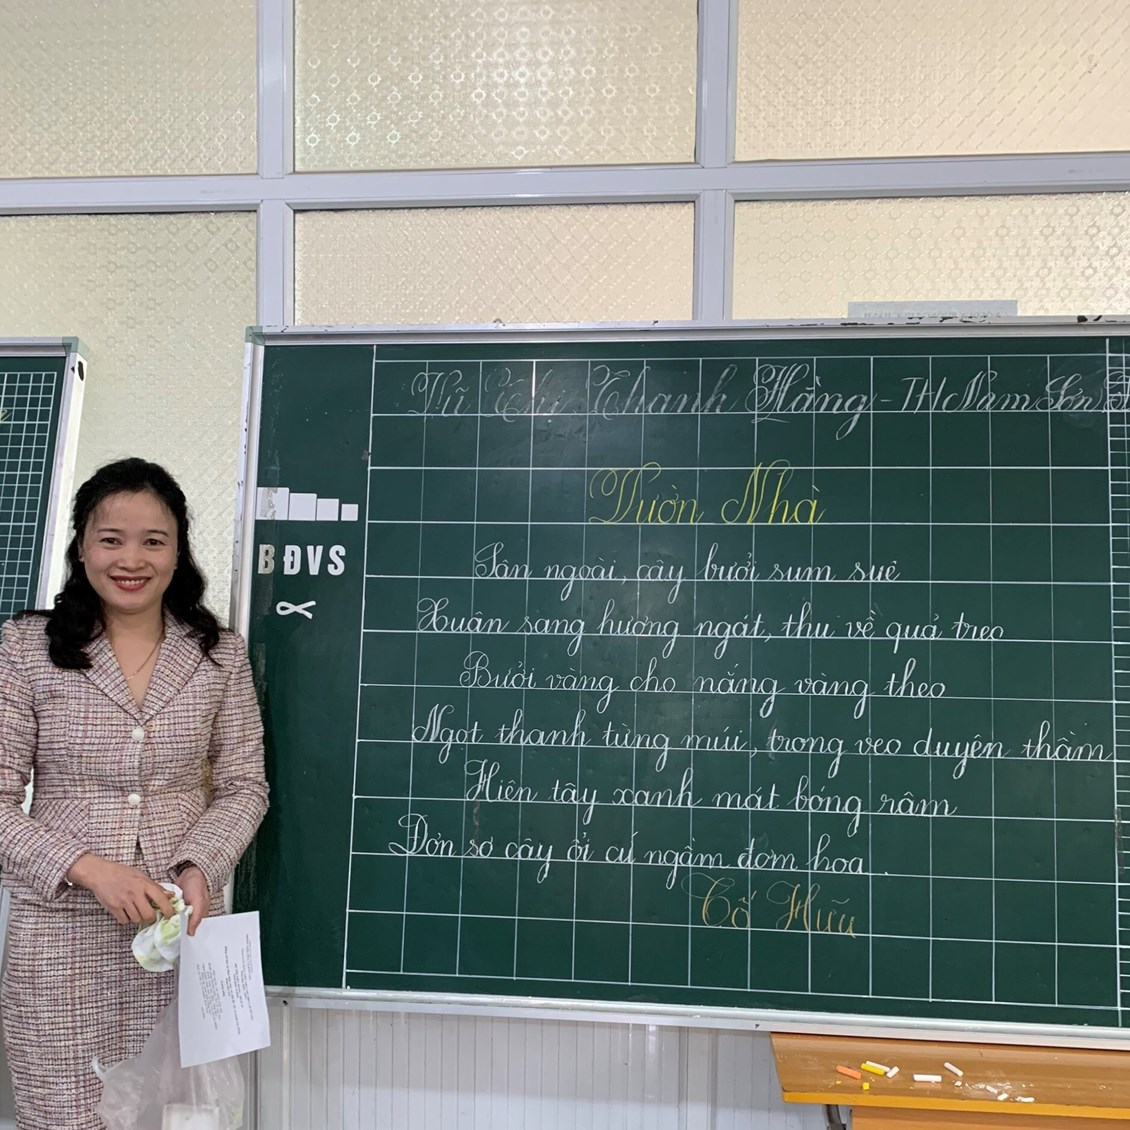 Vũ Thị Thanh Hằng - TH Nam Sơn
Vườn Nhà
Sân ngoài, cây bưởi sum suê
Xuân sang hương ngát, thu về quả treo
Bưởi vàng cho nắng vàng theo
Ngọt thanh từng múi, trong veo duyên thầm
Hiên tây xanh mát bóng râm
Đơn sơ cây ổi cứ ngầm đơm hoa.
Tố Hữu
BĐVS